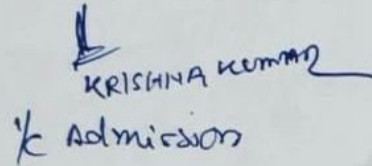 KRISHNA KUMAR
I/c Admission